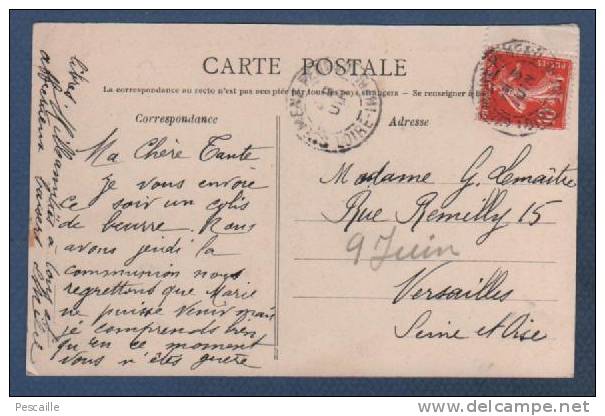 CARTE POSTALE
La correspondance au recto n'est pas acceptée par tous les pays étrangers — Se renseigner à
Correspondance
Adresse
Ma Chère Tante
Je vous envoie
ce soir un colis
de beurre. Nous
avons jeudi la
communion nous
regrettons que Marie
ne puisse venir mais
je comprends bien
qu'en ce moment
vous n'êtes guère
Madame G. Lemaître
Rue Remilly 15
9 Juin
Versailles
Seine et Oise
LOIRE-INF
10
Pescaille
www.delcampe.net